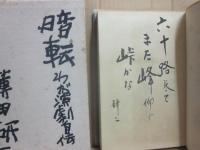 暗転
わが演劇自伝
薄田研
六十路来て
また峰仰ぐ
峠かな
研二